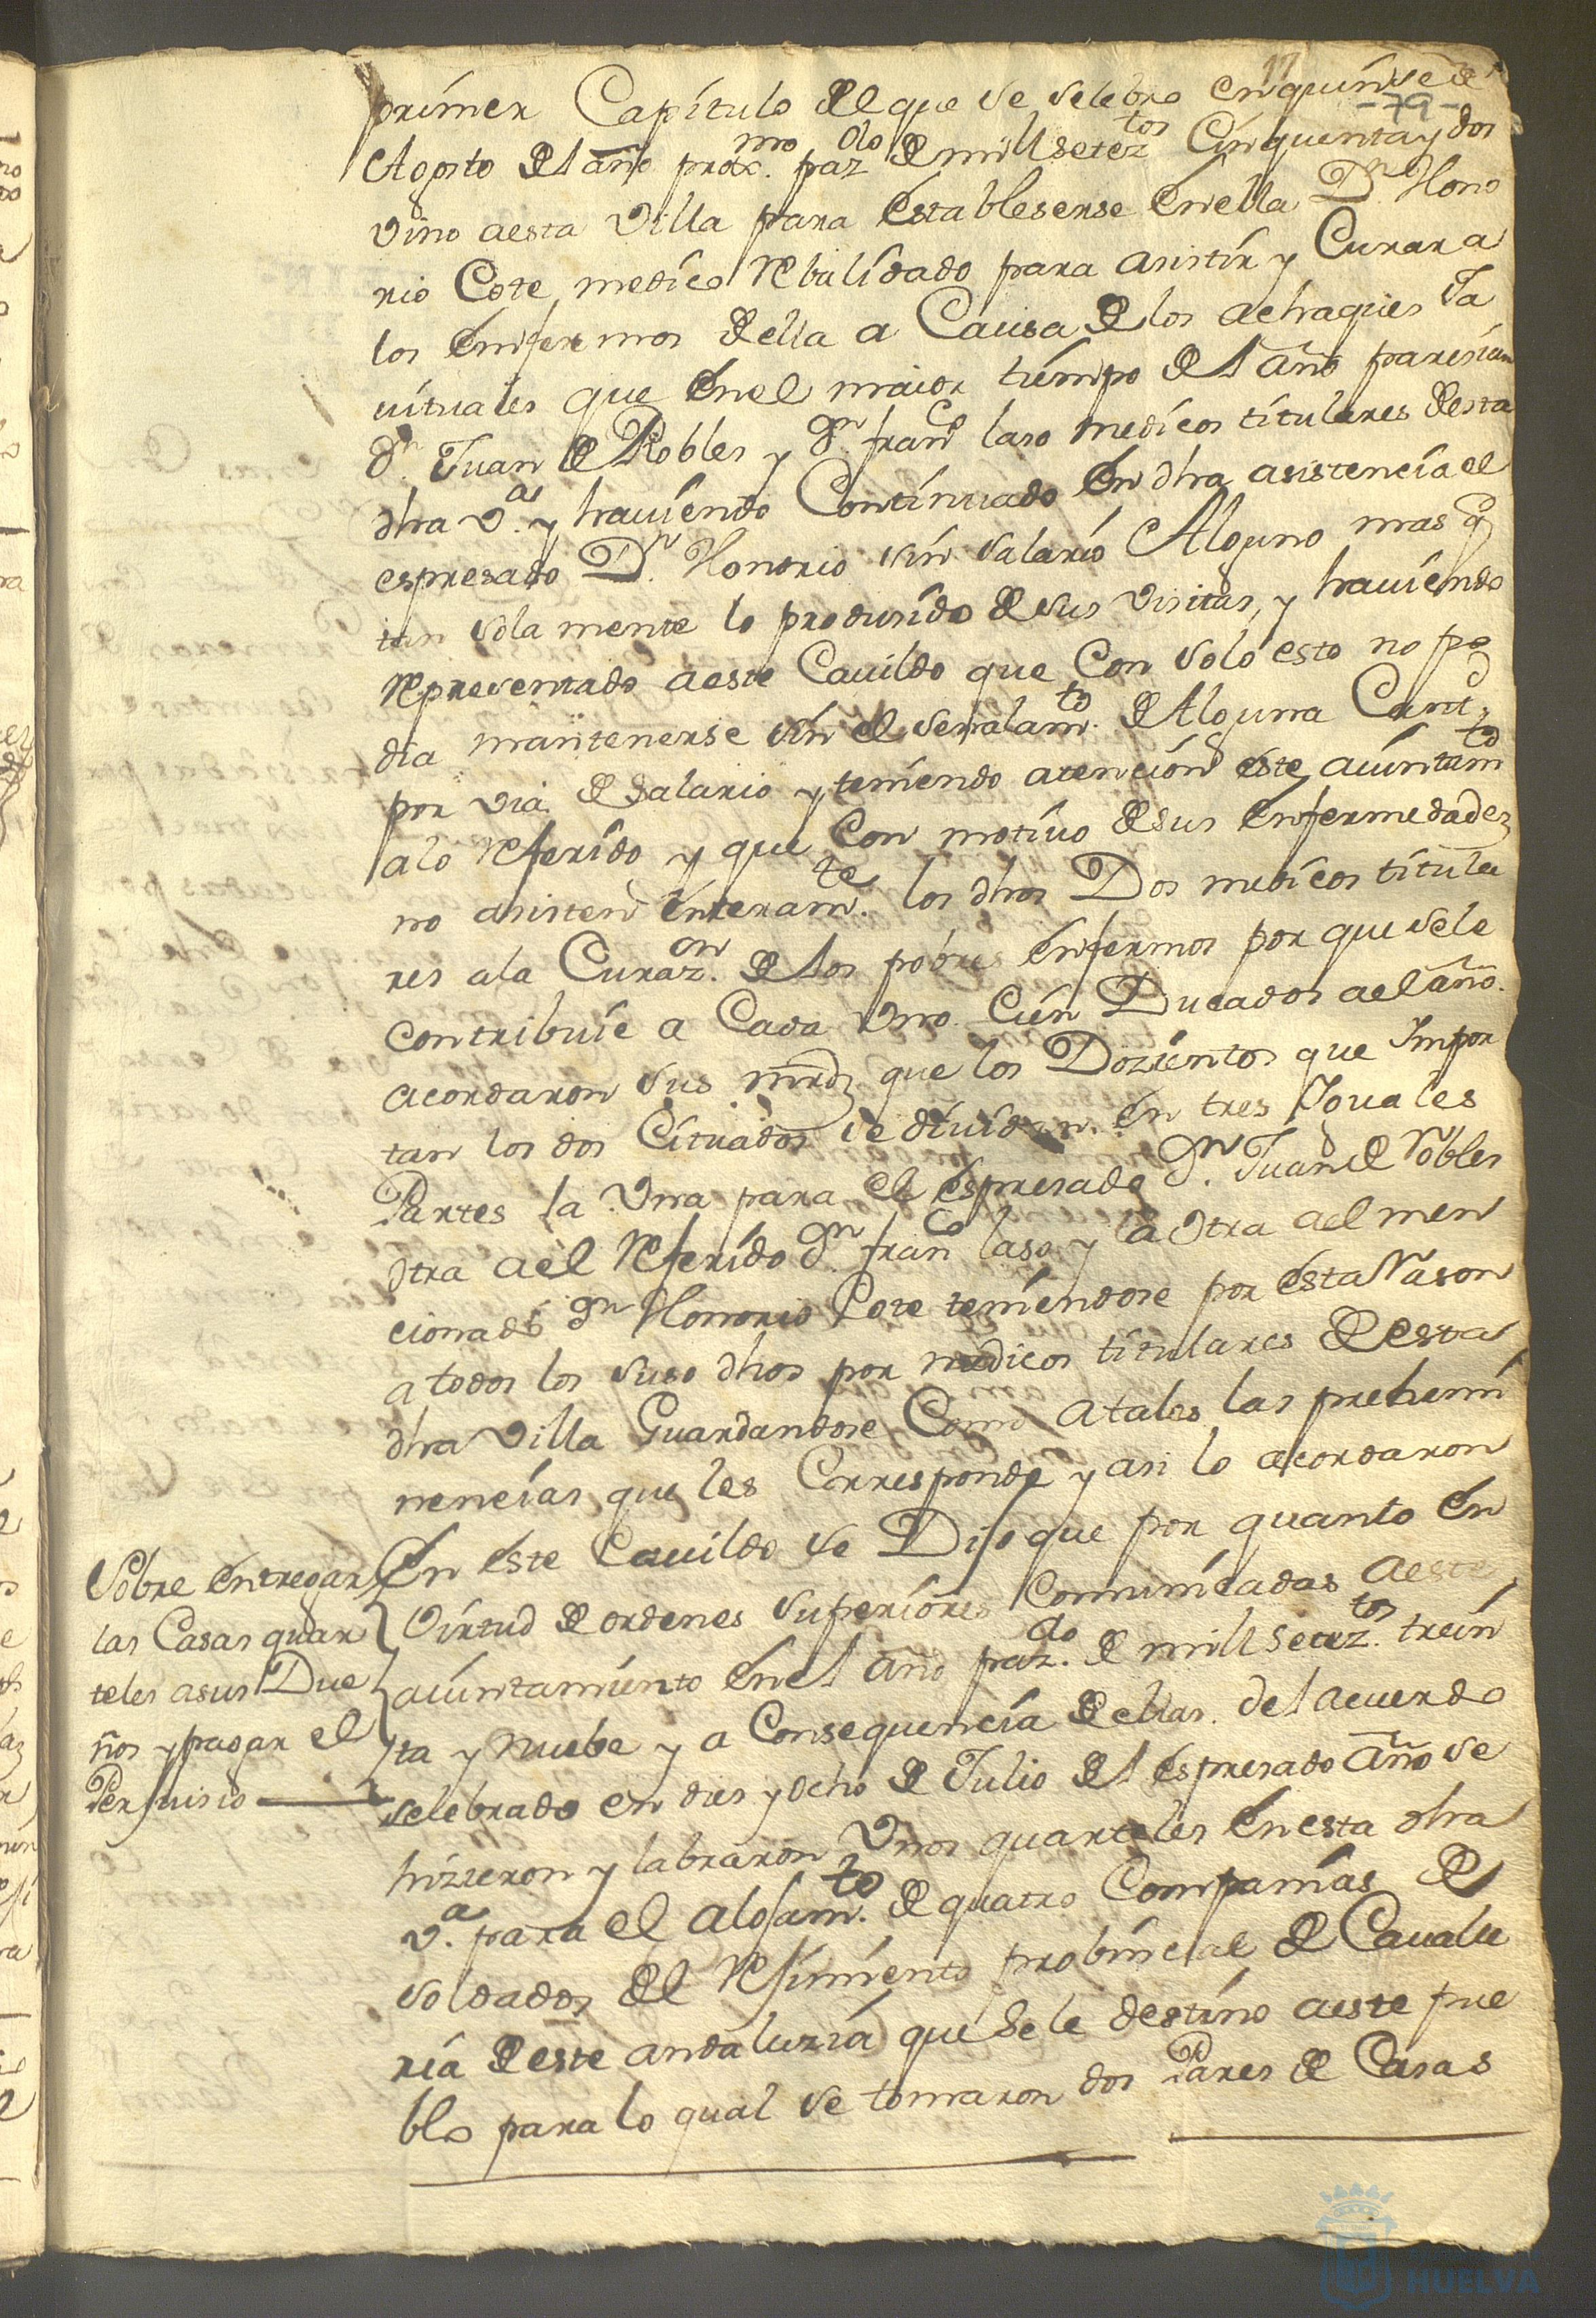 17
-79-
primer Capitulo del que se selebro en quinse de
Agosto del año prox.mo paz.do de mill setez.tos Cinquenta y dos
vino a esta Villa para estableserse en ella D.n Hono
rio Cote medico Rebalidado para asistir y Curar a
los enfermos de ella a Causa de los achaques Ja
vituales que en el maior tiempo del año paresian
d.n Juan de Robles y d.n fran.co laso medicos titulares desta
dha V.a y haviendo Continuado en dha asistencia el
espresado D.n Honorio sin salario Alguno mas q
tan sola mente lo produsido de sus visitas, y haviendo
Representado a este Cavildo que Con solo esto no po
dia mantenerse sin el señalam.to de Alguna Cantd
por via de salario y teniendo atencion este aiuntamto
a lo Referido y que Con motivo de sus enfermedades
no asisten enteram.te los dhos Dos medicos titula
res a la Curaz.on de los pobres enfermos por que se le
contribuie a Cada Uno Cien Ducados ael año.
acordaron sus mrds que los Dozientos que Impor
tan los dos Cituados se dividan en tres Iguales
Partes la Una para el espresado d.n Juan de Robles
otra ael Referido d.n fran.co laso y la otra ael men
cionado d.n Honorio Cote teniendose por esta Rason
a todos los suso dhos por medicos titulares de esta
dha Villa Guardandose Como a tales las prehemi
nencias que les Corresponde y asi lo acordaron
Sobre entregar
las Casas quar
teles a sus Due
ños y pagar el
Perjuisio
En este Cavildo se Dijo que por quanto en
Virtud de ordenes superiores Comunicadas a este
aiuntamiento en el año paz.do de mill setez.tos trein
ta y nuebe y a Consequencia de ellas del acuerdo
selebrado en dies y ocho de Julio del espresado año se
hizieron y labraron Unos quarteles en esta dha
V.a para el alojam.to de quatro Compañias de
soldados del Rejimiento probincial de Cavalle
ria de este andaluzia que se le destino a este pue
blo para lo qual se tomaron dos Pares de Casas
HUELVA